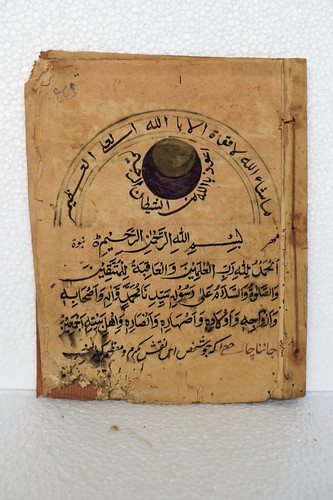 ماشاء الله لا قوة الا بالله العلى العظيم
اعوذ بالله من الشيطان الرجيم
بسم الله الرحمن الرحيم
الحمد لله رب العالمين والعاقبة للمتقين
والصلوة والسلام على رسوله سيدنا محمد وآله واصحابه
وازواجه واولاده واصهاره وانصاره واهل بيته اجمعين
جاننا چاہے کہ جو شخص اس نقش مکرم و معظم